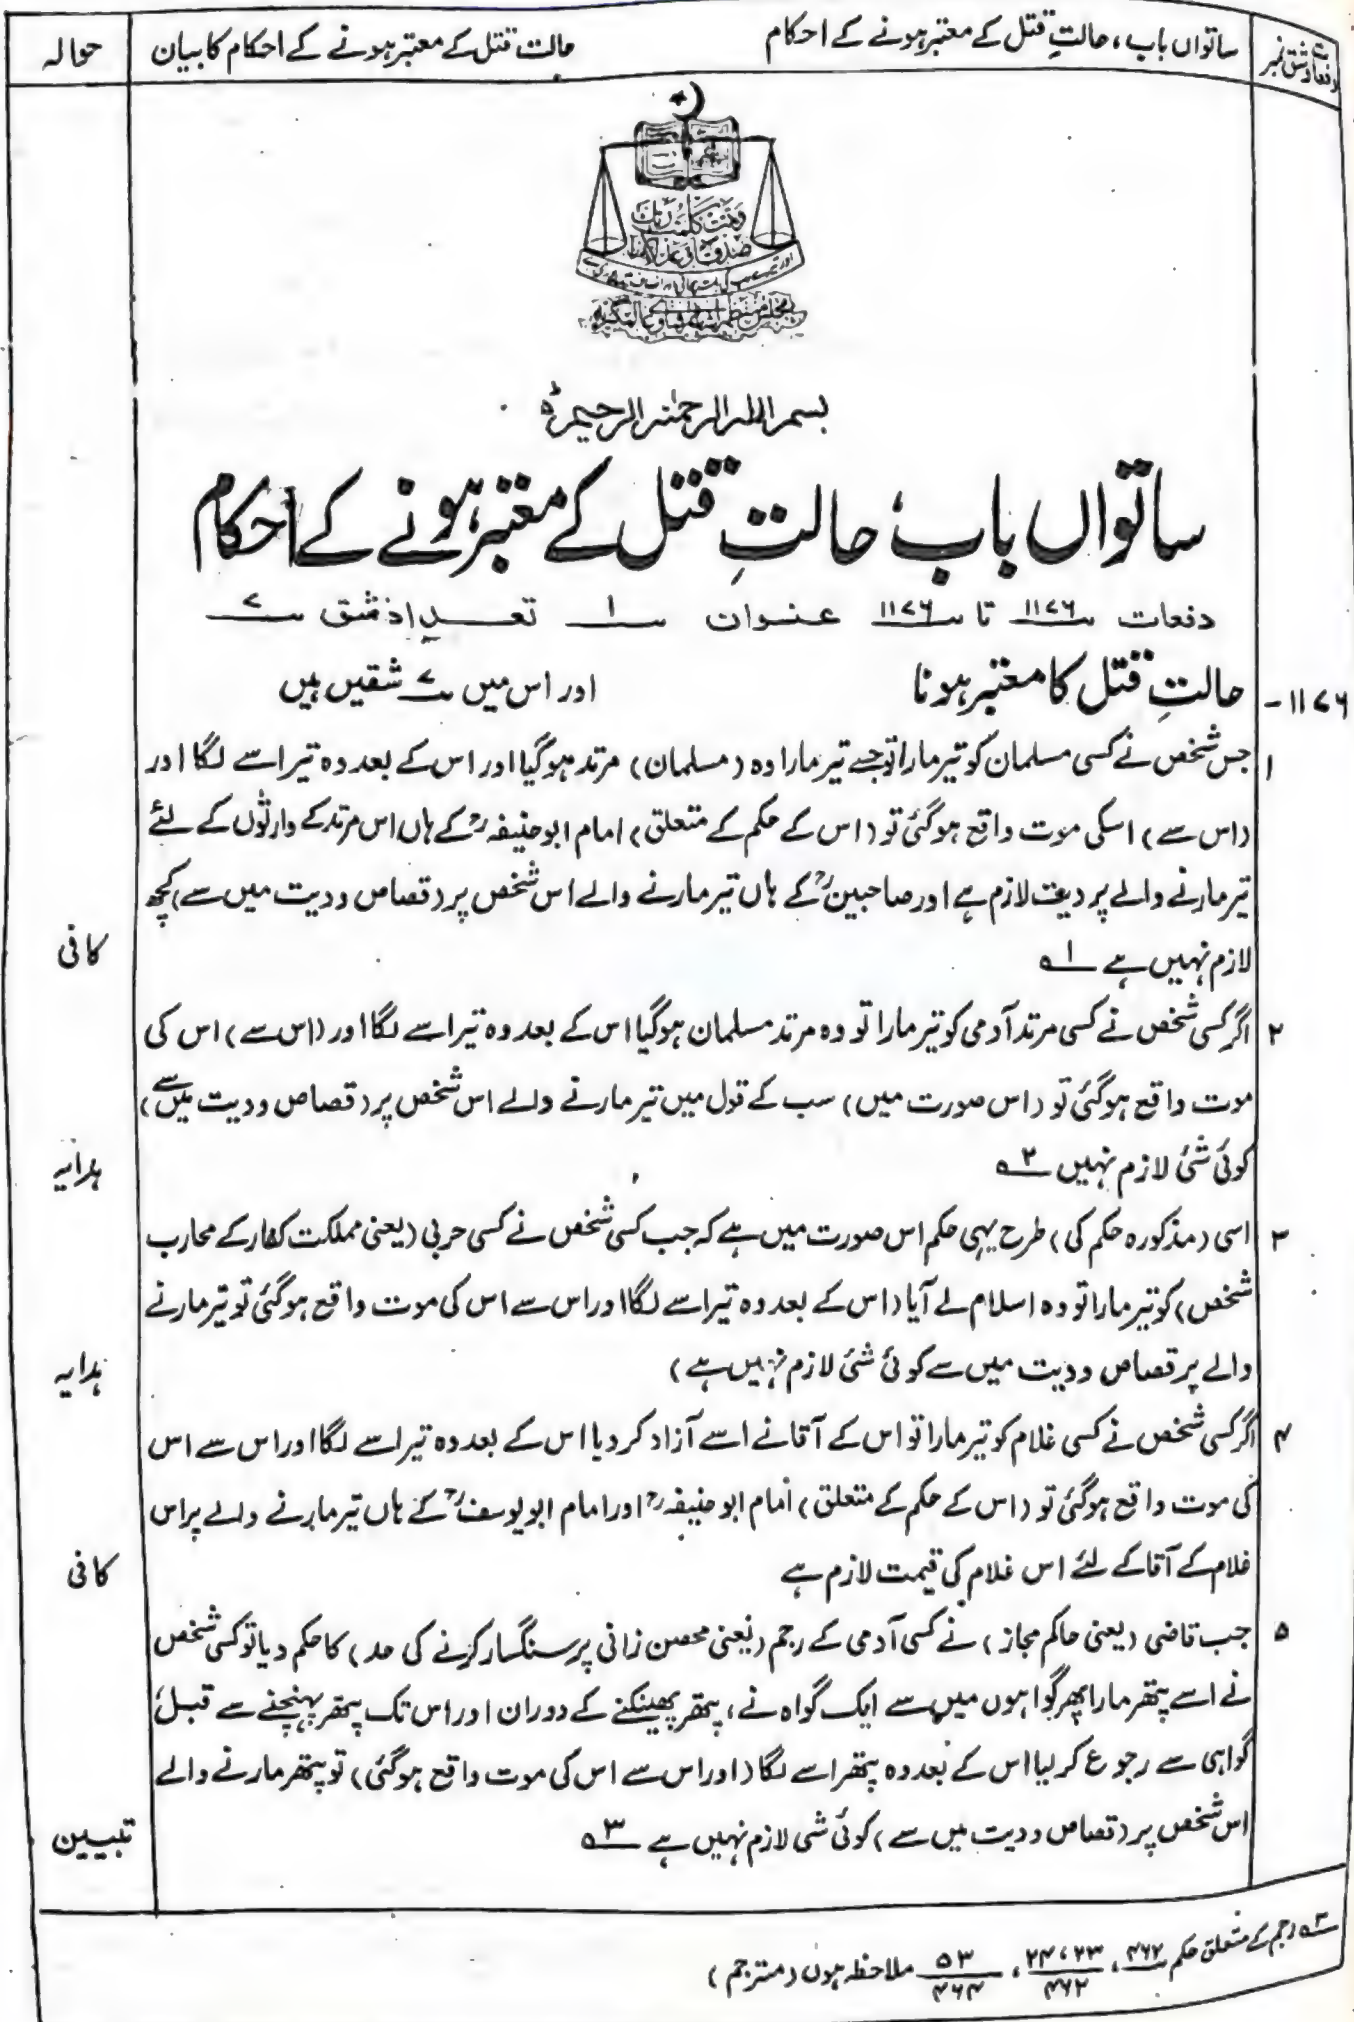 دفعات و شق نمبر
ساتواں باب، حالتِ قتل کے معتبر ہونے کے احکام
حالت قتل کے معتبر ہونے کے احکام کا بیان
حوالہ
وتمت كلمت ربك
صدقا وعدلا
بسم الله الرحمن الرحیم
ساتواں باب، حالتِ قتل کے معتبر ہونے کے احکام
دفعات ۱۱۷۶ تا ۱۱۷۶ عنوان ۱ تعداد شق ۷
۱۱۷۶- حالتِ قتل کا معتبر ہونا اور اس میں ۷ شقیں ہیں
۱ جس شخص نے کسی مسلمان کو تیر مارا تو جسے تیر مارا وہ (مسلمان) مرتد ہوگیا اور اس کے بعد وہ تیر اسے لگا اور
(اس سے) اسکی موت واقع ہوگئی تو (اس کے حکم کے متعلق) امام ابوحنیفہ رح کے ہاں اس مرتد کے وارثوں کے لئے
تیر مارنے والے پر دیت لازم ہے اور صاحبین رح کے ہاں تیر مارنے والے اس شخص پر (قصاص و دیت میں سے) کچھ
لازم نہیں ہے ۱ھ
کافی
۲ اگر کسی شخص نے کسی مرتد آدمی کو تیر مارا تو وہ مرتد مسلمان ہوگیا اس کے بعد وہ تیر اسے لگا اور (اس سے) اس کی
موت واقع ہوگئی تو (اس صورت میں) سب کے قول میں تیر مارنے والے اس شخص پر (قصاص و دیت میں سے)
کوئی شئ لازم نہیں ۲ھ
ہدایہ
۳ اسی (مذکورہ حکم کی) طرح یہی حکم اس صورت میں ہے کہ جب کسی شخص نے کسی حربی (یعنی مملکت کفار کے محارب
شخص) کو تیر مارا تو وہ اسلام لے آیا (اس کے بعد وہ تیر اسے لگا اور اس سے اس کی موت واقع ہوگئی تو تیر مارنے
والے پر قصاص و دیت میں سے کوئی شئ لازم نہیں ہے)
ہدایہ
۴ اگر کسی شخص نے کسی غلام کو تیر مارا تو اس کے آقا نے اسے آزاد کر دیا اس کے بعد وہ تیر اسے لگا اور اس سے اس
کی موت واقع ہوگئی تو (اس کے حکم کے متعلق) امام ابو حنیفہ رح اور امام ابو یوسف رح کے ہاں تیر مارنے والے پر اس
غلام کے آقا کے لئے اس غلام کی قیمت لازم ہے
کافی
۵ جب قاضی (یعنی حاکم مجاز) نے کسی آدمی کے رجم (یعنی محصن زانی پر سنگسار کرنے کی حد) کا حکم دیا تو کسی شخص
نے اسے پتھر مارا پھر گواہوں میں سے ایک گواہ نے، پتھر پھینکنے کے دوران اور اس تک پتھر پہنچنے سے قبل
گواہی سے رجوع کر لیا اس کے بعد وہ پتھر اسے لگا (اور اس سے اس کی موت واقع ہوگئی) تو پتھر مارنے والے
اس شخص پر (قصاص و دیت میں سے) کوئی شی لازم نہیں ہے ۳ھ
تبیین
۳ھ رجم کے متعلق حکم ۴۶۲، ۲۳، ۲۴/۴۶۲، ۵۳/۴۶۴ ملاحظہ ہوں (مترجم)